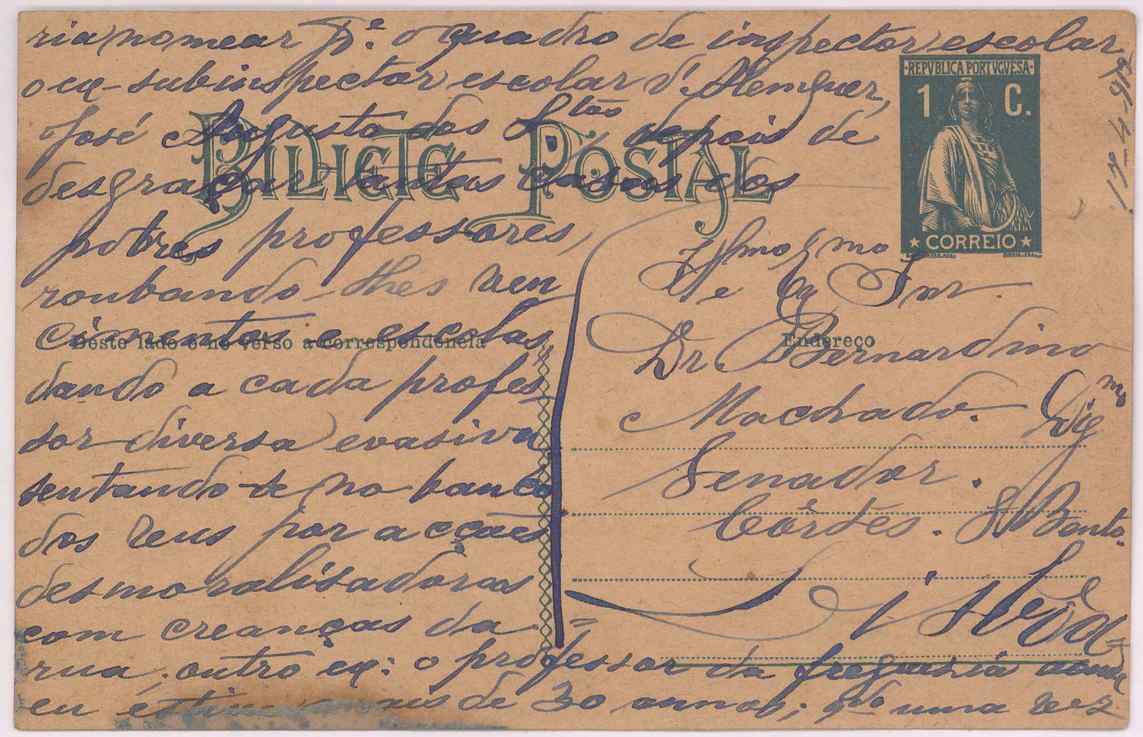 ria nomear P.ª o quadro de inspector escolar
o ex-subinspector escolar d'Alenquer,
José Augusto dos Stos depois de
desgraçar tantas casas dos
pobres professores,
roubando-lhes ven
cimentos e escolas
dando a cada profes
sor diversa evasiva
sentando-se no banco
dos reus por acções
desmoralisadoras
com creanças da
rua. outro ex: o professor da freguesia
eu mais de 30 annos; uma vez
BILHETE POSTAL
REPVBLICA PORTVGVESA
1 C.
CORREIO
Deste lado e no verso a correspondencia
Endereço
Illmo e Exmo Snr.
Dr Bernardino
Machado. Digmo
Senador.
Côrtes. S. Bento.
Lisboa